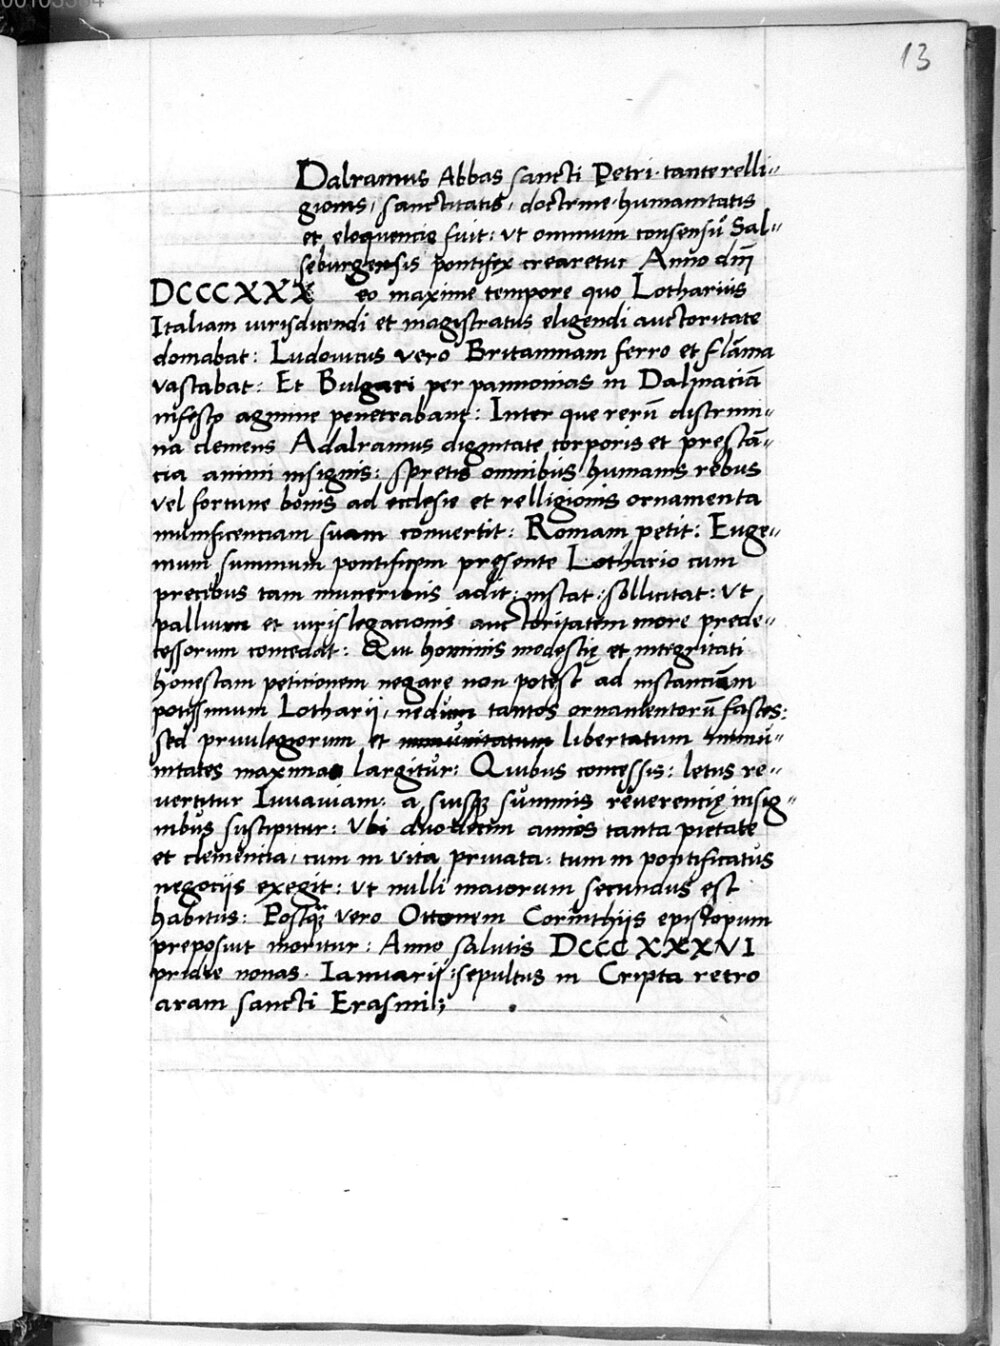 00103384
13
Dalramus Abbas sancti Petri. tante relli-
gionis, sanctitatis, doctrine. humanitatis
et eloquencie fuit: ut omnium consensū Sal-
seburgensis pontifex crearetur Anno dm̄
DCCCXXX eo maxime tempore quo Lotharius
Italiam iurisdicendi et magistratus eligendi auctoritate
domabat: Ludovicus vero Britanniam ferro et flāma
vastabat: Et Bulgari per pannonias in Dalmaciā
infesto agmine penetrabant: Inter que rerū discrimi-
na clemens Adalramus dignitate corporis et prestā-
cia animi insignis: spretis omnibus humanis rebus
vel fortune bonis ad ecclesie et relligionis ornamenta
munificenciam suam convertit: Romam petit: Euge-
nium summum pontificem pręsente Lothario cum
precibus tam muneribus adit: instat: sollicitat: ut
pallium et iuris legacionis auctoritatem more prede-
cessorum concedat: Qui hominis modestię et integritati
honestam peticionem negare non potest ad instanciam
potissimum Lotharii, nedum tantos ornamentorū fastes:
sed privilegiorum et immunitatum libertatum immu-
nitates maximas largitur: Quibus concessis: letus re-
vertitur Iuvaviam: a suisqꝫ summis reverencię insig-
nibus suscipitur: Ubi duodecim annos tanta pietate
et clemencia, cum in vita privata: tum in pontificatus
negociis exegit: ut nulli maiorum secundus est
habitus: Postqꝫ vero Ottonem Corinthiis episcopum
preposuit moritur: Anno salutis DCCCXXXVI
pridie nonas. Ianuarii: sepultus in Cripta retro
aram sancti Erasmi;